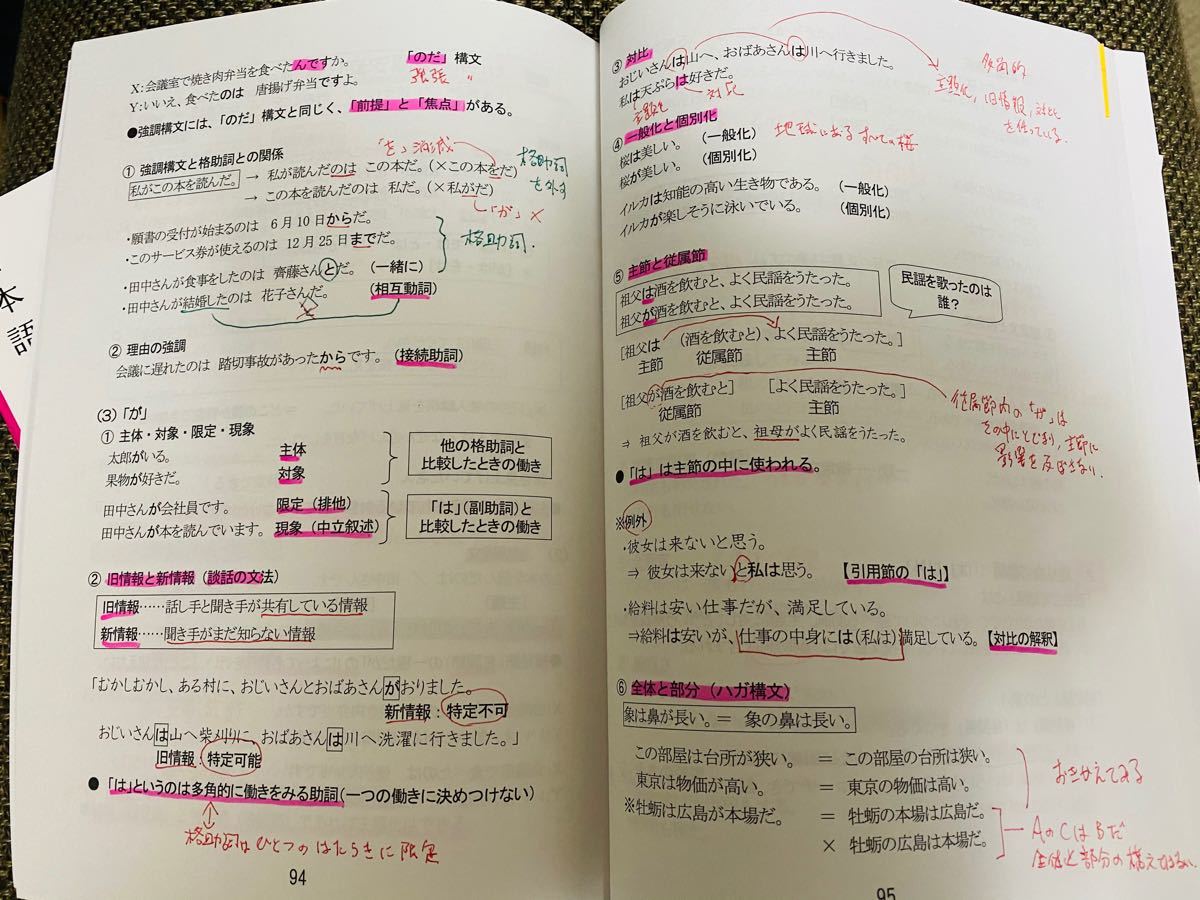 本
語
X:会議室で焼き肉弁当を食べたんですか。 「のだ」構文
Y:いいえ、食べたのは 唐揚げ弁当ですよ。 強張 〃
●強調構文には、「のだ」構文と同じく、「前提」と「焦点」がある。
① 強調構文と格助詞との関係
「を」消滅
私がこの本を読んだ。 → 私が読んだのは この本だ。(×この本をだ) 格助詞
→ この本を読んだのは 私だ。(×私がだ) を外す
「が」×
・願書の受付が始まるのは 6月10日からだ。
・このサービス券が使えるのは 12月25日までだ。 格助詞.
・田中さんが食事をしたのは 齊藤さんとだ。 (一緒に)
・田中さんが結婚したのは 花子さんだ。 (相互動詞)
と
② 理由の強調
会議に遅れたのは 踏切事故があったからです。 (接続助詞)
(3)「が」
① 主体・対象・限定・現象
太郎がいる。 主体
果物が好きだ。 対象
他の格助詞と
比較したときの働き
田中さんが会社員です。 限定(排他)
田中さんが本を読んでいます。 現象(中立叙述)
「は」(副助詞)と
比較したときの働き
② 旧情報と新情報(談話の文法)
旧情報……話し手と聞き手が共有している情報
新情報……聞き手がまだ知らない情報
「むかしむかし、ある村に、おじいさんとおばあさんがおりました。
新情報:特定不可
おじいさんは山へ柴刈りに、おばあさんは川へ洗濯に行きました。」
旧情報:特定可能
●「は」というのは多角的に働きをみる助詞(一つの働きに決めつけない)
格助詞はひとつのはたらきに限定
94
③ 対比
おじいさんは山へ、おばあさんは川へ行きました。
私は天ぷらは好きだ。
主題化 対比
多角的
主題化, 旧情報, 対比
を使っている.
④ 一般化と個別化
桜は美しい。 (一般化) 地球にあるすべての桜
桜が美しい。 (個別化)
イルカは知能の高い生き物である。 (一般化)
イルカが楽しそうに泳いでいる。 (個別化)
⑤ 主節と従属節
祖父は酒を飲むと、よく民謡をうたった。
祖父が酒を飲むと、よく民謡をうたった。
民謡を歌ったのは
誰?
[祖父は (酒を飲むと)、よく民謡をうたった。]
主節 従属節 主節
[祖父が酒を飲むと] [よく民謡をうたった。]
従属節 主節
⇒ 祖父が酒を飲むと、祖母がよく民謡をうたった。
従属節内の「が」は
その中にとどまり, 主節に
影響を及ぼさない.
●「は」は主節の中に使われる。
※例外
・彼女は来ないと思う。
⇒ 彼女は来ないと私は思う。 【引用節の「は」】
・給料は安い仕事だが、満足している。
⇒給料は安いが、仕事の中身には(私は)満足している。【対比の解釈】
⑥ 全体と部分(ハガ構文)
象は鼻が長い。= 象の鼻は長い。
この部屋は台所が狭い。 = この部屋の台所は狭い。
東京は物価が高い。 = 東京の物価は高い。
おきかえてみる
※牡蛎は広島が本場だ。 = 牡蛎の本場は広島だ。
× 牡蛎の広島は本場だ。
AのCはBだ
全体と部分の構文ではない.
95